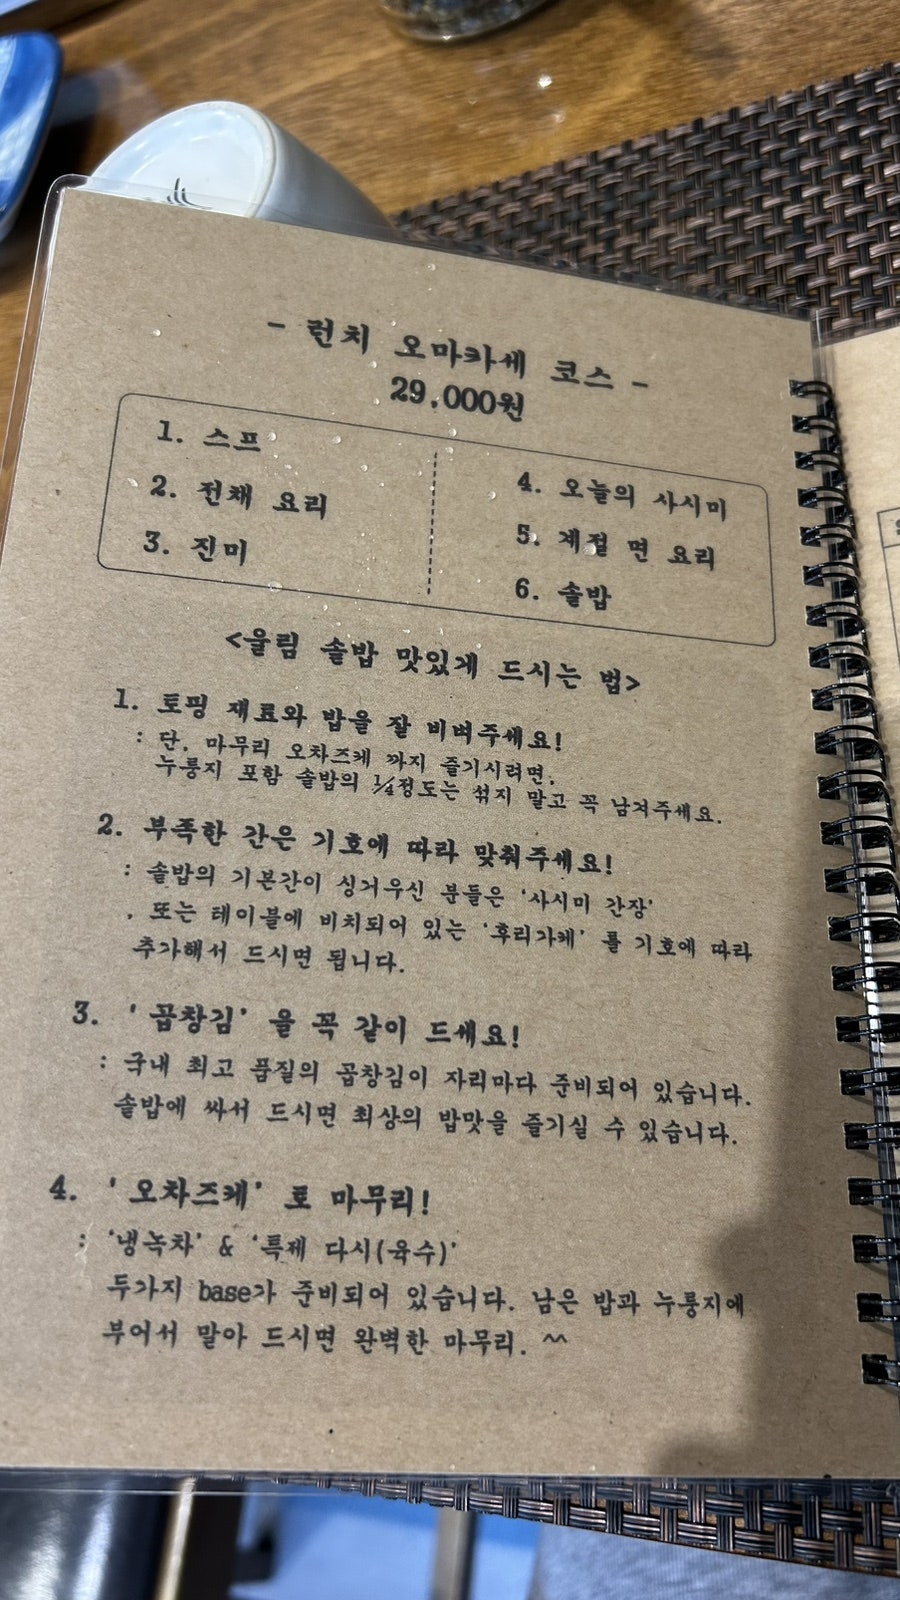 - 런치 오마카세 코스 -
29,000원
1. 스프
2. 전채 요리
3. 진미
4. 오늘의 사시미
5. 계절 면 요리
6. 솥밥
<울림 솥밥 맛있게 드시는 법>
1. 토핑 재료와 밥을 잘 비벼주세요!
: 단, 마무리 오차즈케 까지 즐기시려면,
누룽지 포함 솥밥의 ¼정도는 섞지 말고 꼭 남겨주세요.
2. 부족한 간은 기호에 따라 맞춰주세요!
: 솥밥의 기본간이 싱거우신 분들은 '사시미 간장'
, 또는 테이블에 비치되어 있는 '후리가케' 를 기호에 따라
추가해서 드시면 됩니다.
3. '곱창김' 을 꼭 같이 드세요!
: 국내 최고 품질의 곱창김이 자리마다 준비되어 있습니다.
솥밥에 싸서 드시면 최상의 밥맛을 즐기실 수 있습니다.
4. '오차즈케' 로 마무리!
: '냉녹차' & '특제 다시(육수)'
두가지 base가 준비되어 있습니다. 남은 밥과 누룽지에
부어서 말아 드시면 완벽한 마무리. ^^